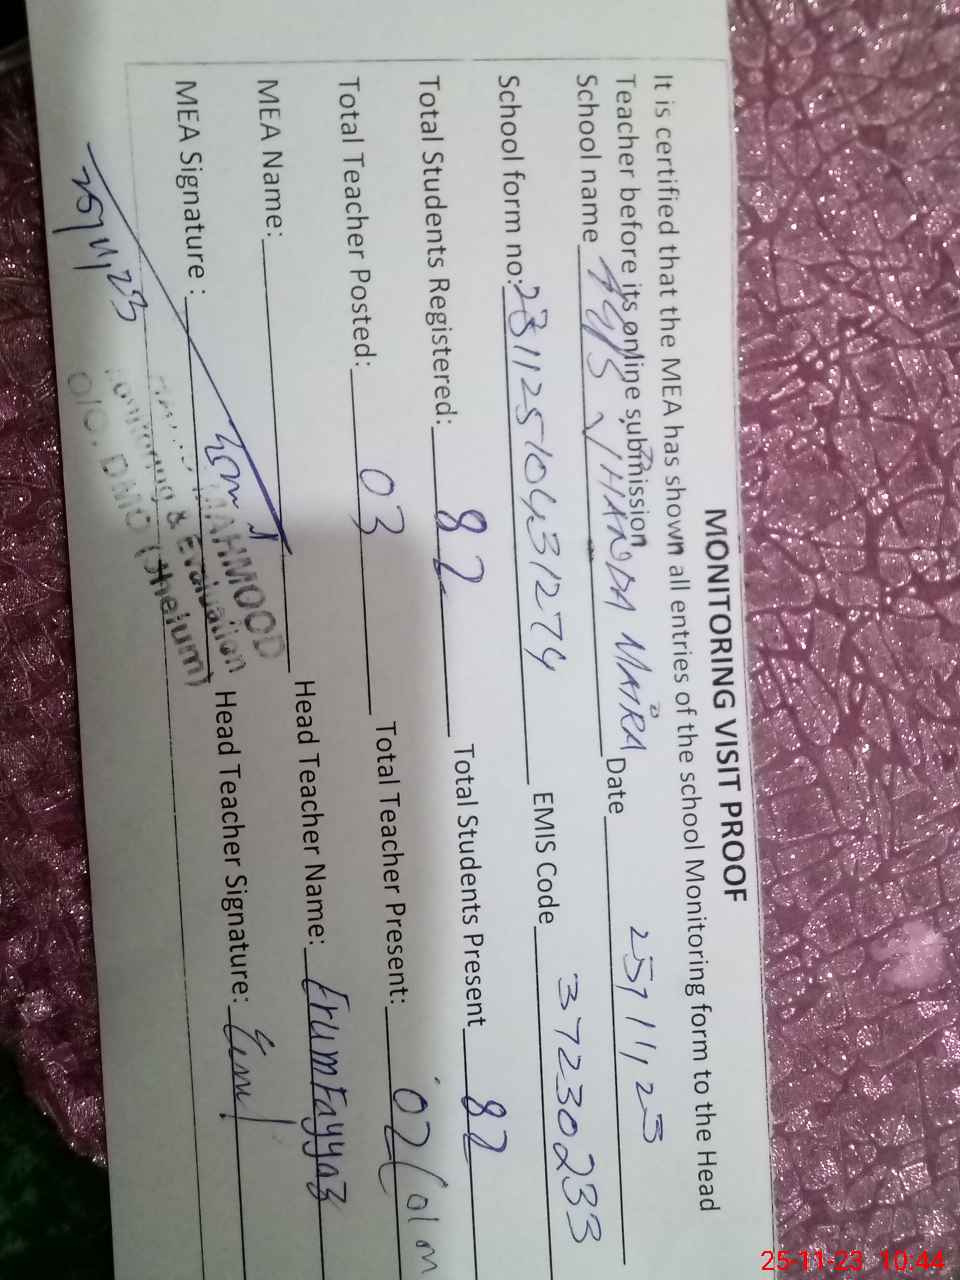 MONITORING VISIT PROOF
It is certified that the MEA has shown all entries of the school Monitoring form to the Head
Teacher before its online submission
School name JHANDA MAIRA Date 25,11,23
School form no: 23112510431274 EMIS Code 37230233
Total Students Registered: 82 Total Students Present 82
Total Teacher Posted: 03 Total Teacher Present: 02
MEA Name: Head Teacher Name: Erum Fayyaz
MEA Signature : Head Teacher Signature:
MAHMOOD
Monitoring & Evaluation
O/O. DMO (Jhelum)
25,11,23
25-11-23 10:44